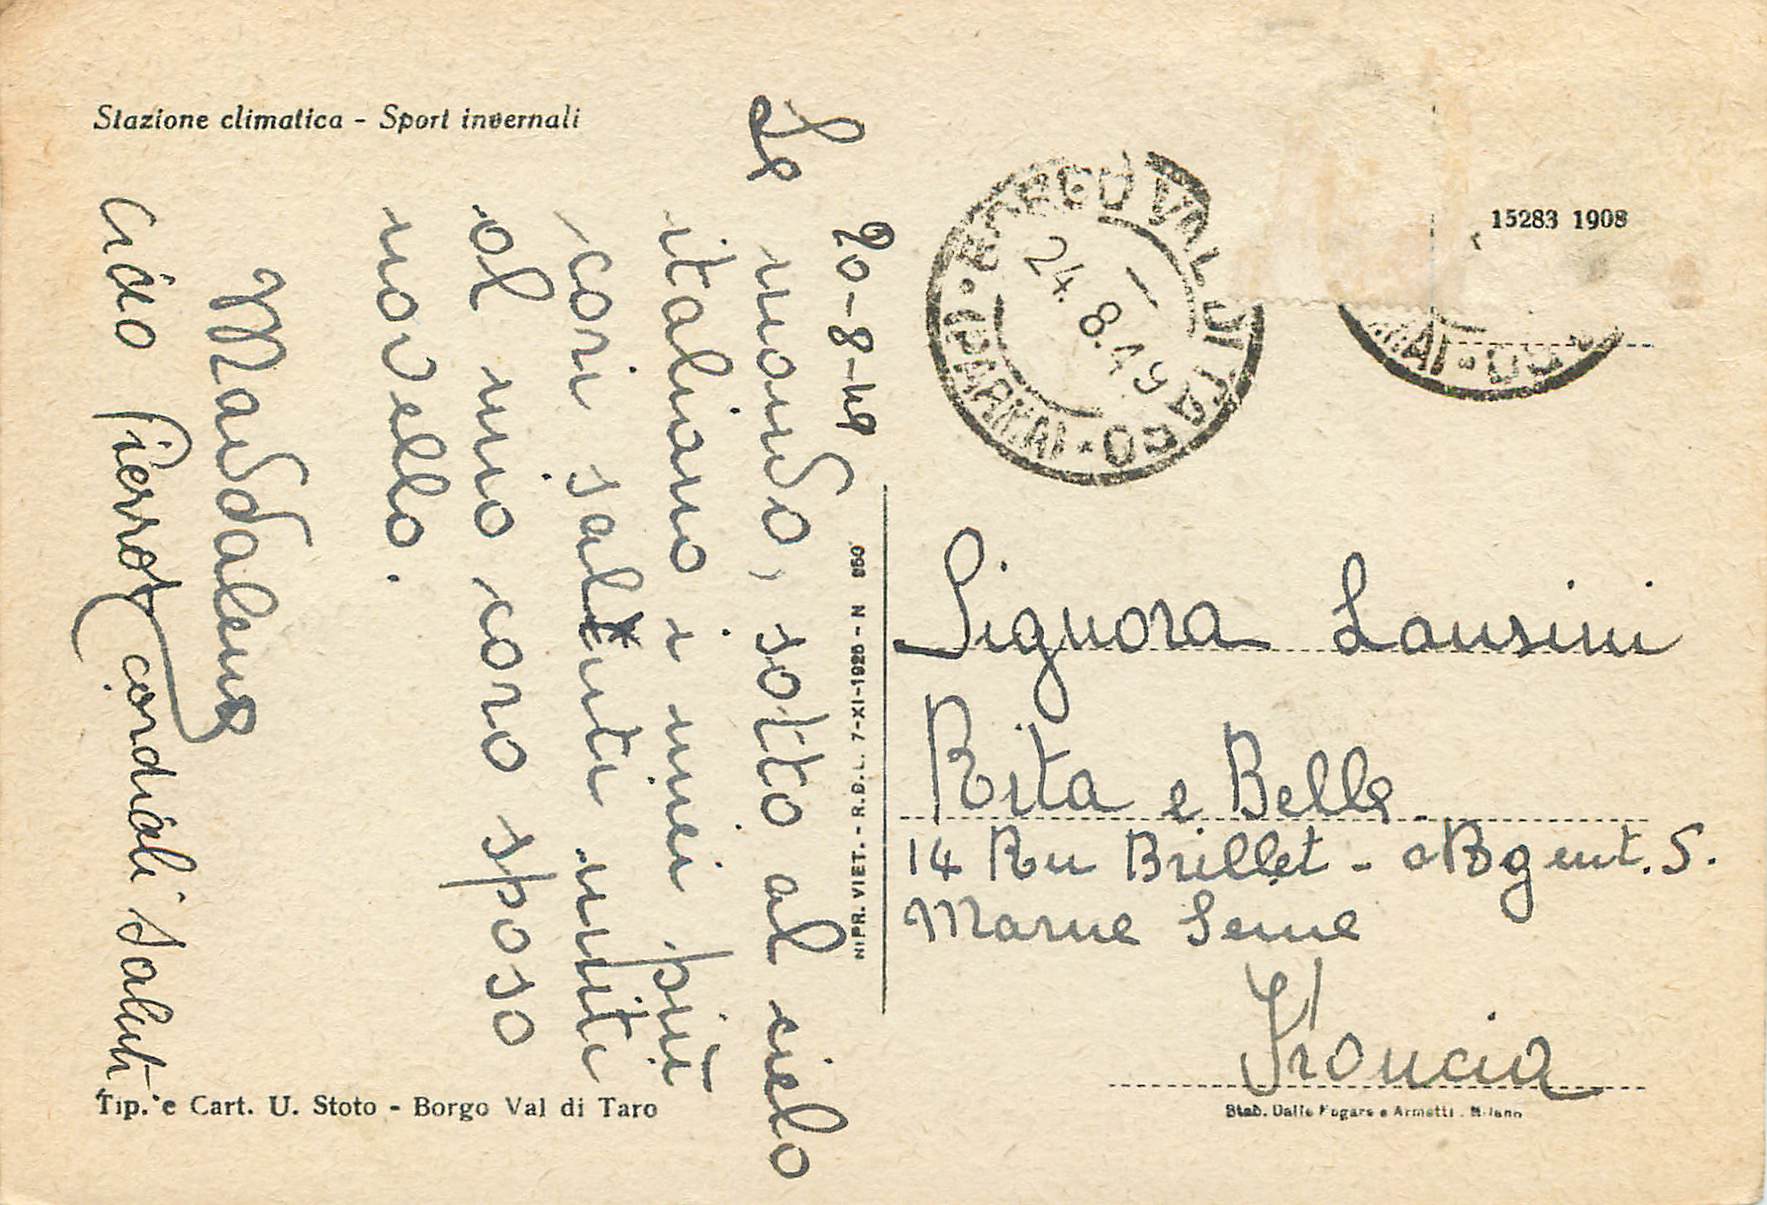 Stazione climatica - Sport invernali
20-8-49
Le mando, sotto al cielo
italiano i miei più
cari saluti uniti
al mio caro sposo
novello.
Maddalena
Ciao Pierrot cordiali Saluti
Tip. e Cart. U. Stoto - Borgo Val di Taro
RIPR. VIET. - R.D.L. 7-XI-1925 - N 950
BORGO VAL DI TARO (PARMA)
24.8.49
15283 1908
Signora Lansini
Rita e Belle.
14 Ru Brillet - Argent. S.
Marne Seine
Francia
Stab. Dalle Nogare e Armetti . Milano